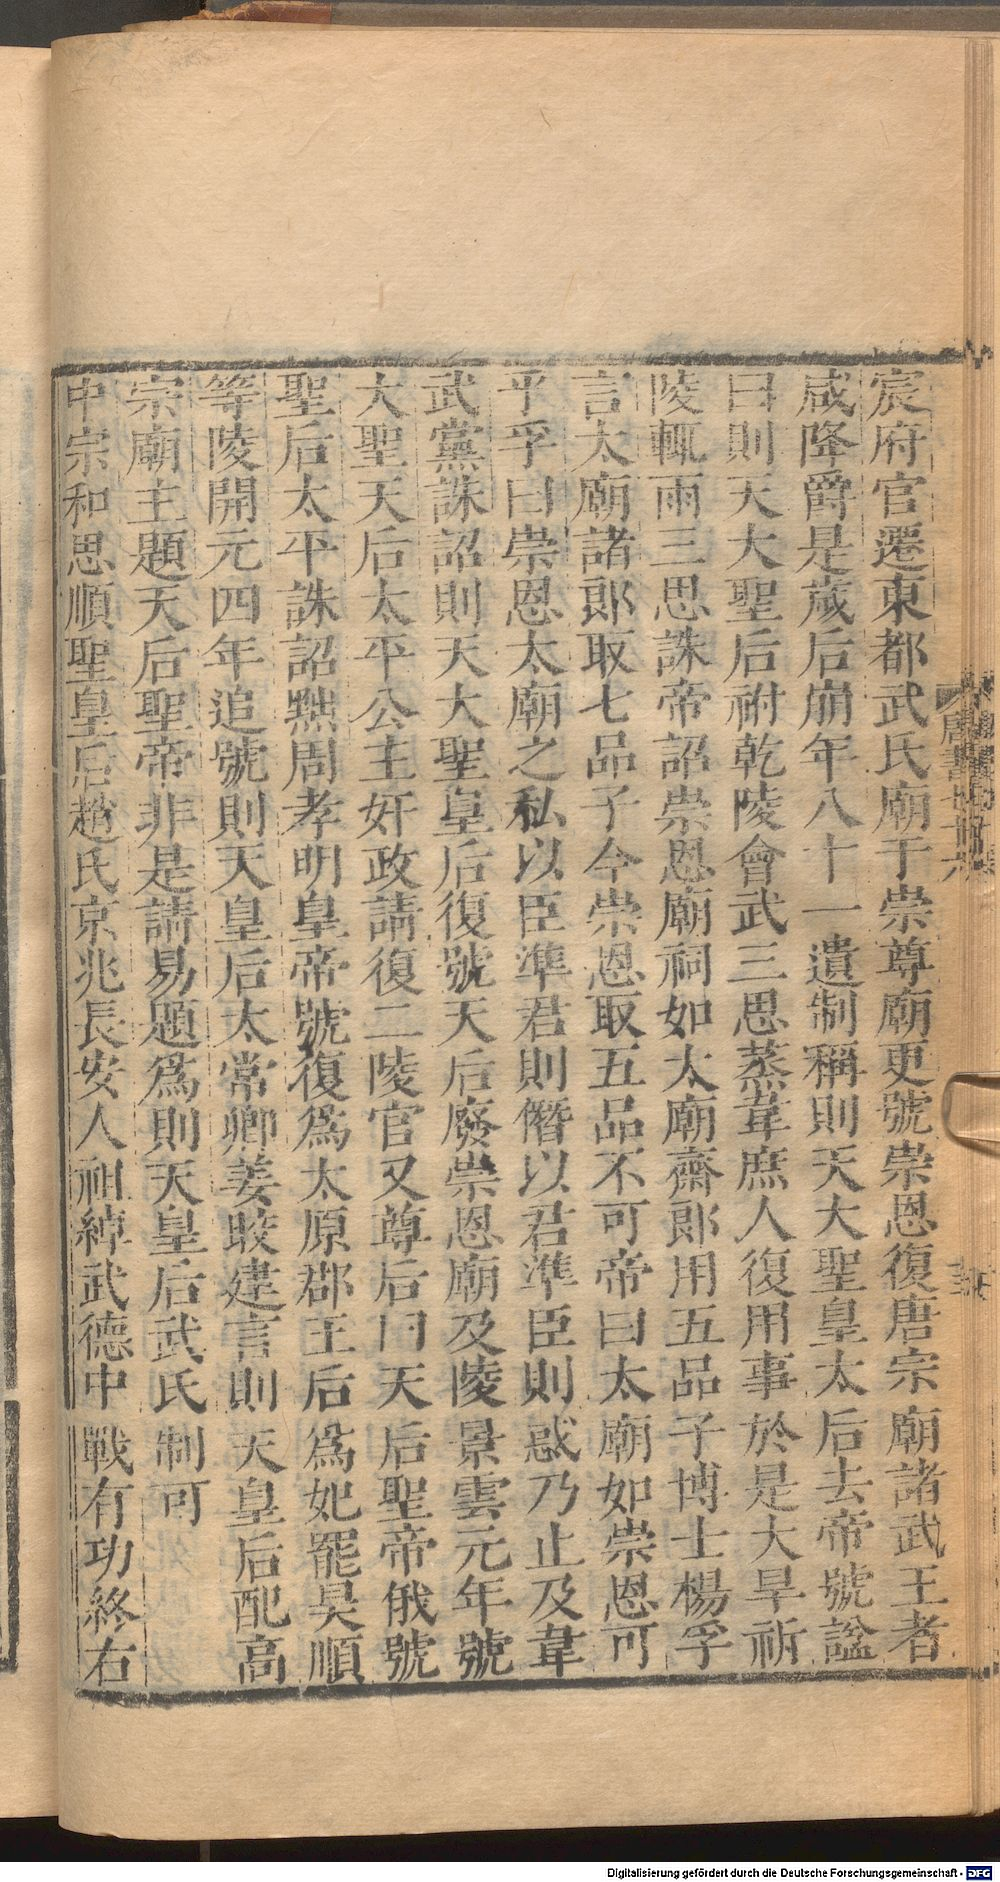 宸府官遷東都武氏廟于崇尊廟更號崇恩復唐宗廟諸武王者
咸降爵是歲后崩年八十一遺制稱則天大聖皇太后去帝號諡
曰則天大聖后祔乾陵會武三思蒸韋庶人復用事於是大旱祈
陵輒雨三思誅帝詔崇恩廟祠如太廟齋郎用五品子博士楊孚
言太廟諸郎取七品子今崇恩取五品不可帝曰太廟如崇恩可
乎孚曰崇恩太廟之私以臣準君則僭以君準臣則惑乃止及韋
武黨誅詔則天大聖皇后復號天后廢崇恩廟及陵景雲元年號
大聖天后太平公主奸政請復二陵官又尊后曰天后聖帝俄號
聖后太平誅詔黜周孝明皇帝號復為太原郡王后為妃罷昊順
等陵開元四年追號則天皇后太常卿姜晈建言則天皇后配高
宗廟主題天后聖帝非是請易題為則天皇后武氏制可
中宗和思順聖皇后趙氏京兆長安人祖綽武德中戰有功終右
唐書七十六
Digitalisierung gefördert durch die Deutsche Forschungsgemeinschaft - DFG